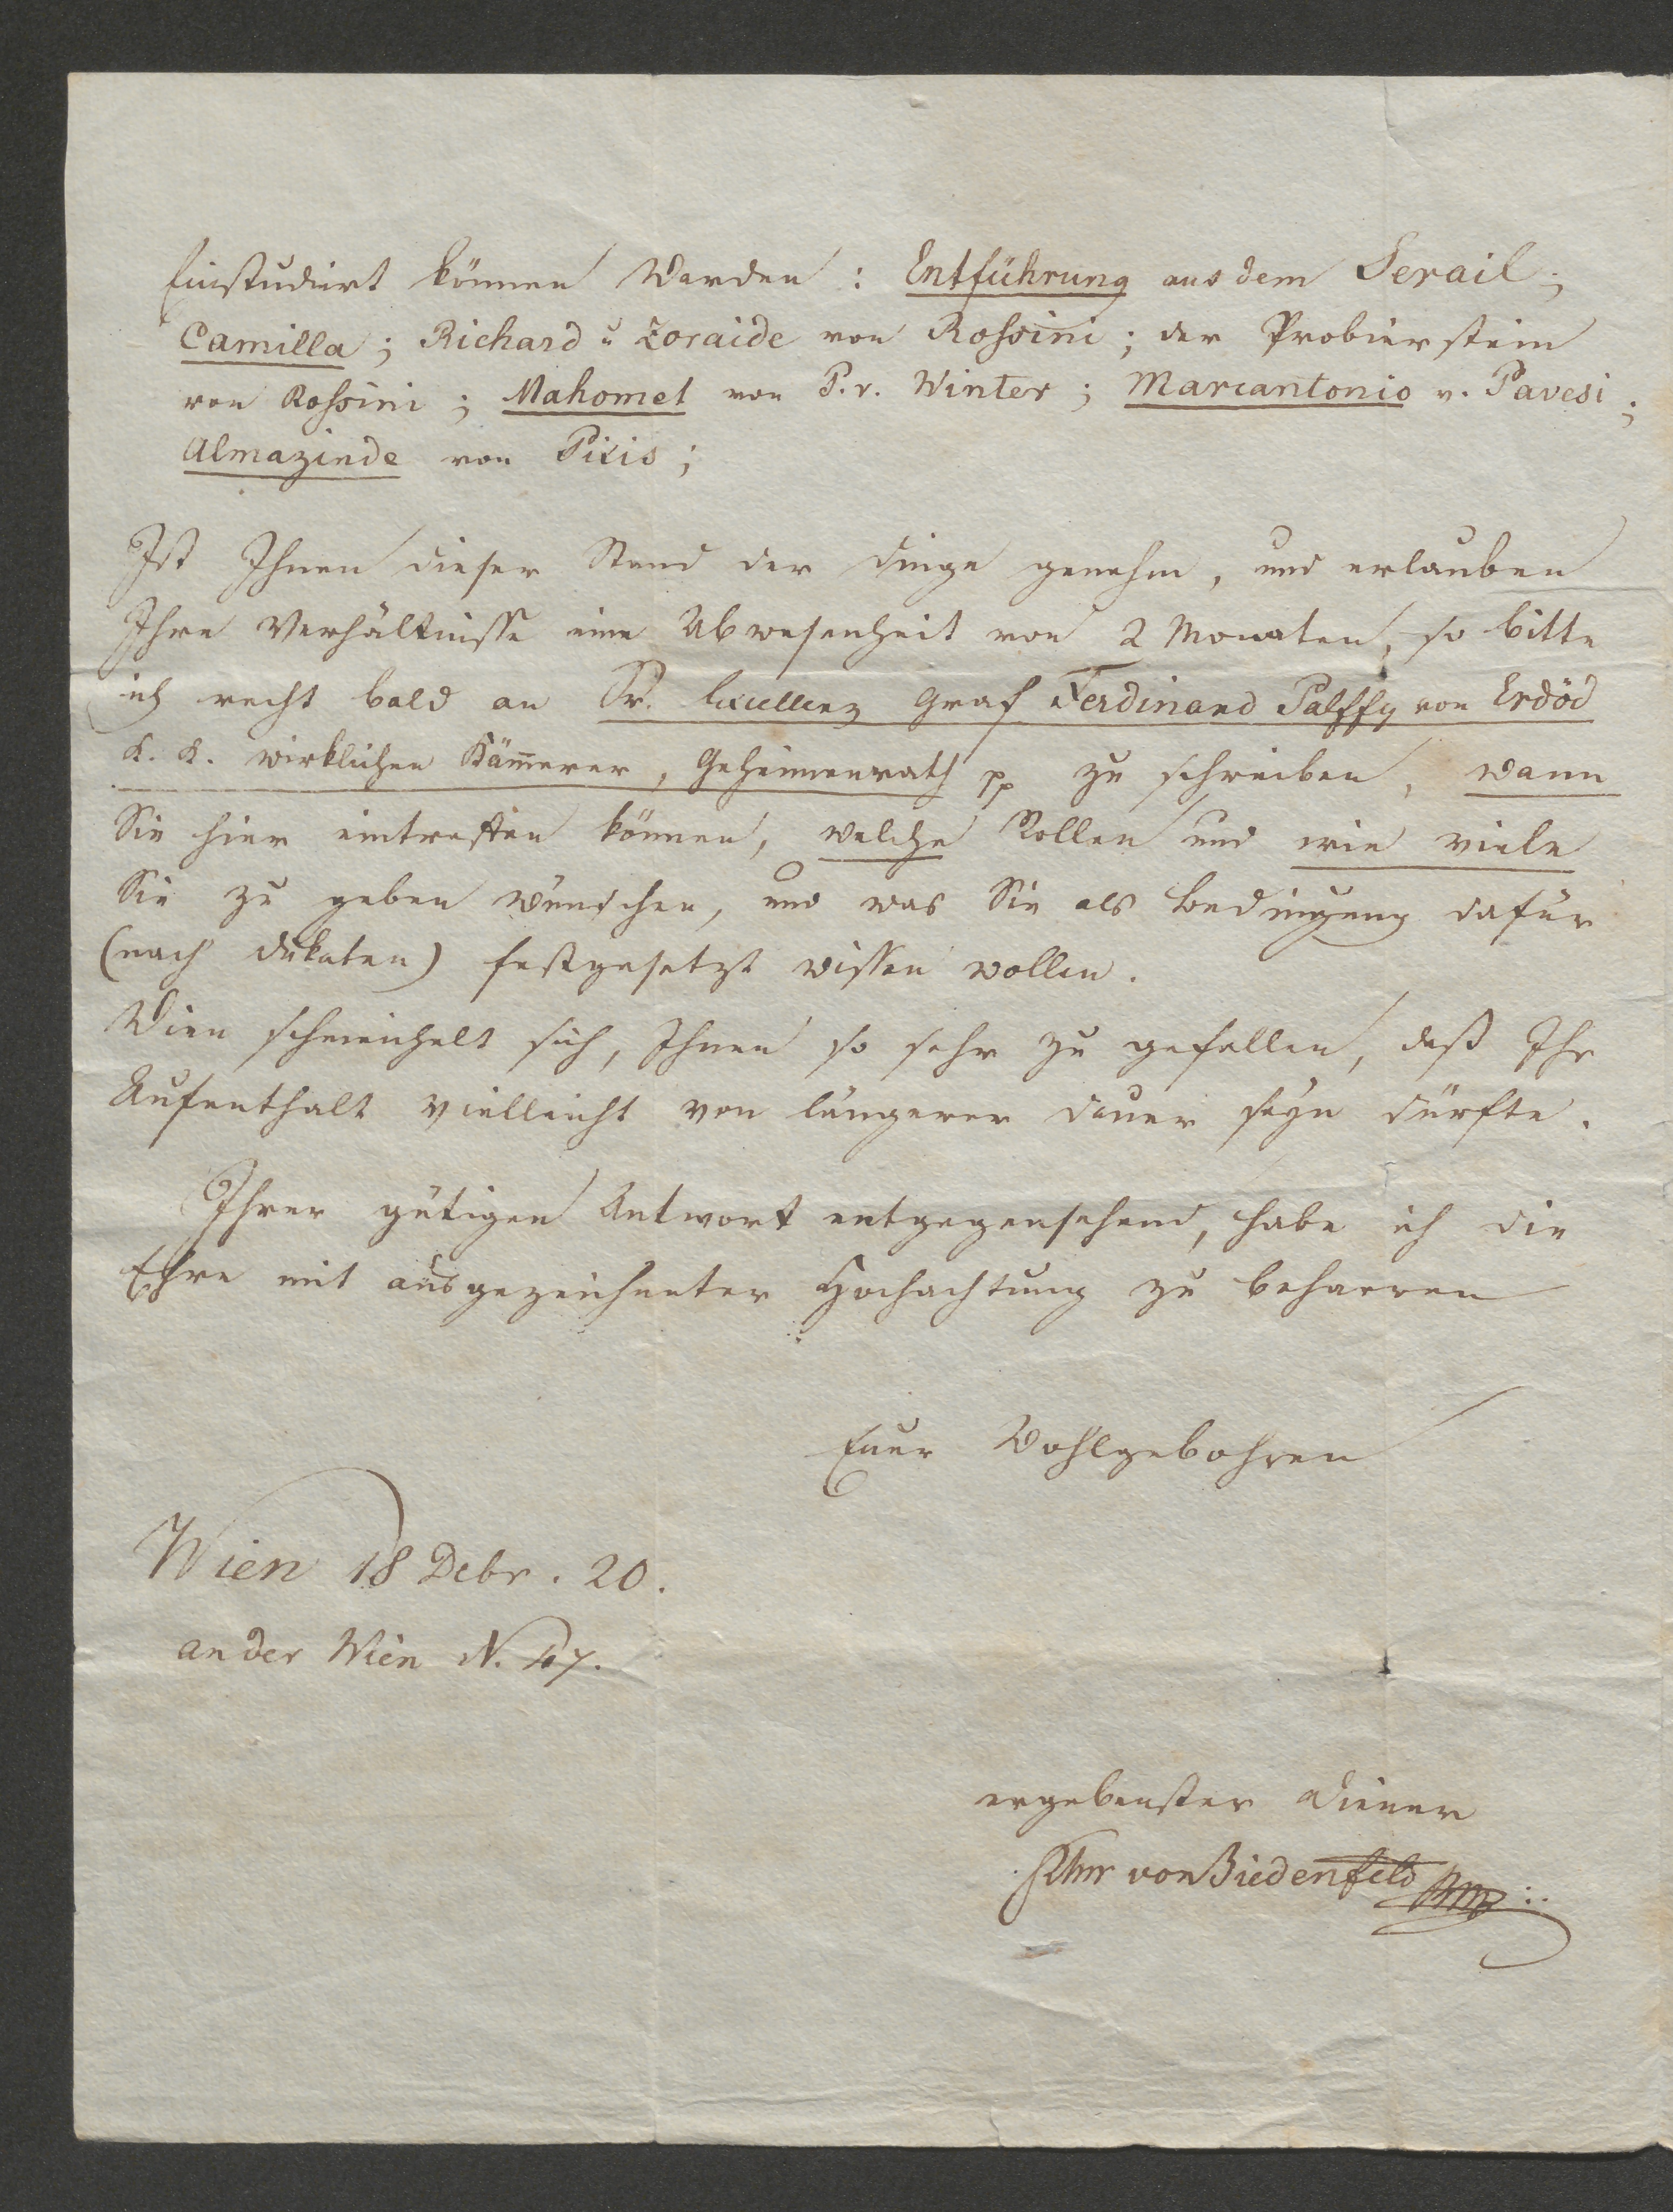 Einstudiert können werden: Entführung aus dem Serail;
Camilla; Richard u Zoraide von Rossini; der Probierstein
von Rossini; Mahomet von P. v. Winter; Marcantonio v. Pavesi;
Almazinde von Pixis;
Ist Ihnen dieser Stand der Dinge genehm, und erlauben
Ihre Verhältnisse eine Abwesenheit von 2 Monaten, so bitte
ich recht bald an Sr. Excellenz Graf Ferdinand Palffy von Erdöd
K. K. wirklichen Kämerer, Geheimenrath pp zu schreiben, wann
Sie hier eintreffen können, welche Rollen und wie viele
Sie zu geben wünschen, und was Sie als Bedingung dafür
(nach Dukaten) festgesetzt wissen wollen.
Wien schmeichelt sich, Ihnen so sehr zu gefallen, daß Ihr
Aufenthalt vielleicht von längerer Dauer seyn dürfte.
Ihrer gütigen Antwort entgegensehend, habe ich die
Ehre mit ausgezeichneter Hochachtung zu beharren
Euer Wohlgebohren
Wien 18 Debr. 20.
an der Wien N. 27.
ergebenster Diener
Fhr von Biedenfeld